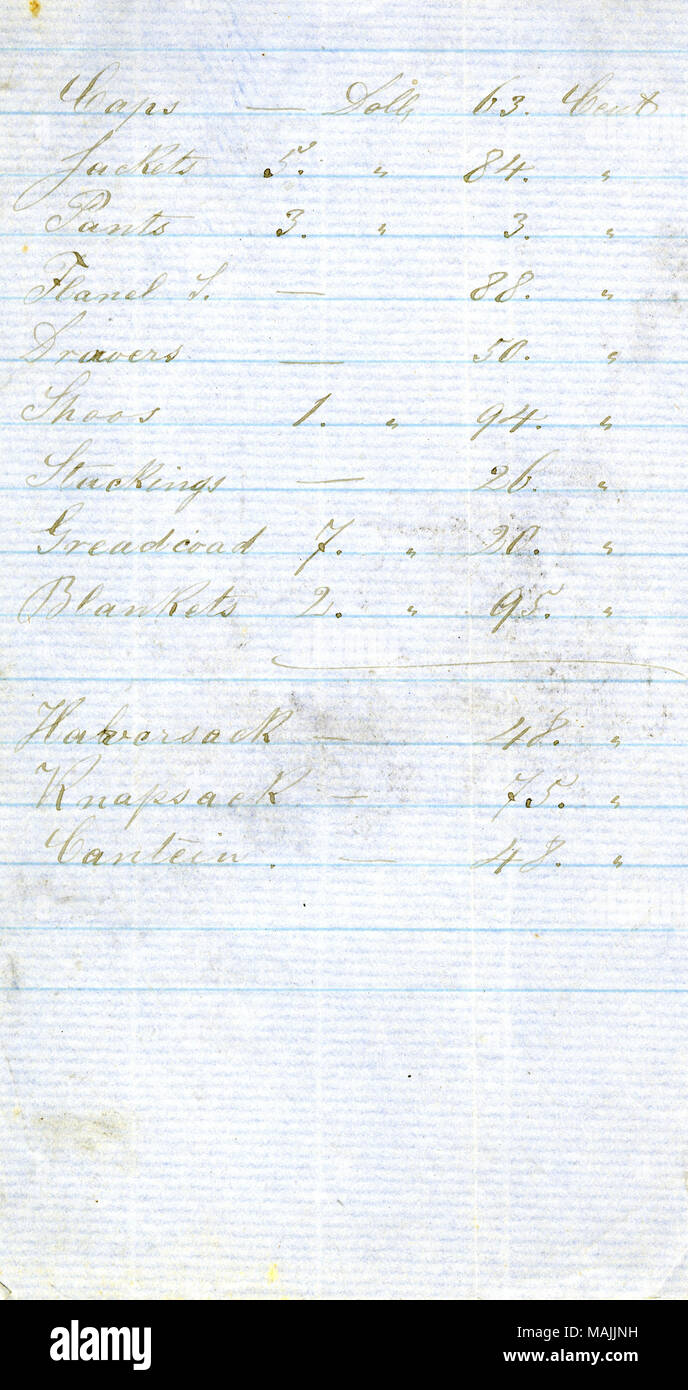 Caps — Doll, 63. Cent
Jackets 5. " 84. "
Pants 3. " 3. "
Flanel S. — 88. "
Drawers — 50. "
Shoos 1. " 94. "
Stuckings — 26. "
Greadcoad 7. " 20. "
Blankets 2. " 95. "
Haversack — 48. "
Knapsack — 75. "
Cantein. — 48. "
a
alamy
Image ID: MAJJNH
www.alamy.com